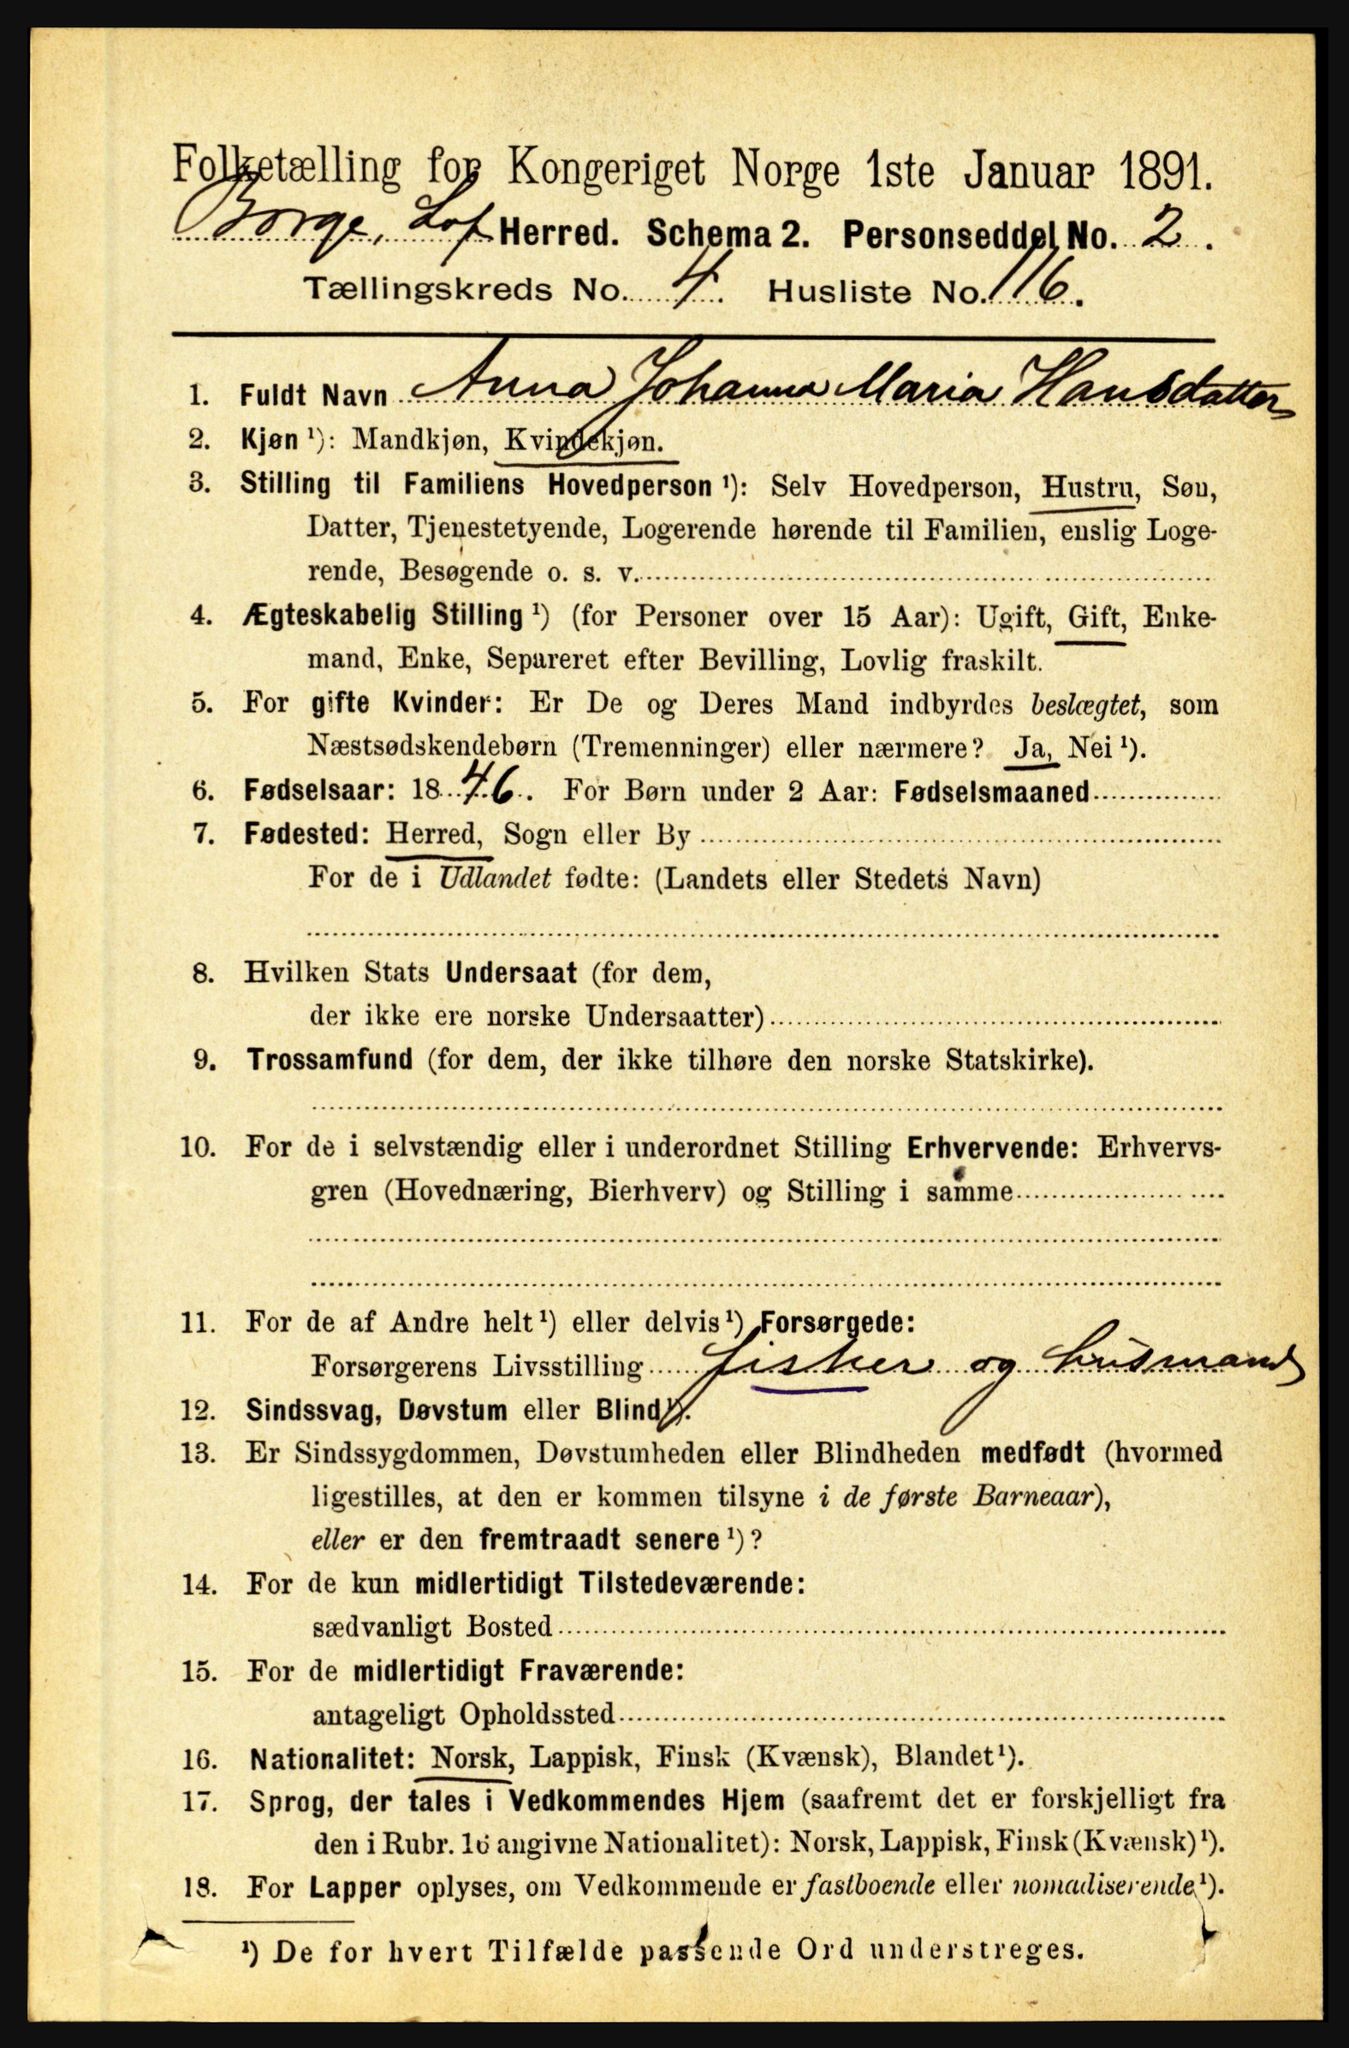 Folketælling for Kongeriget Norge 1ste Januar 1891.
Borge, Lof Herred. Schema 2. Personseddel No. 2.
Tællingskreds No. 4. Husliste No. 116.
1. Fuldt Navn Anna Johanna Maria Hansdatter
2. Kjøn ¹): Mandkjøn, Kvindekjøn.
3. Stilling til Familiens Hovedperson ¹): Selv Hovedperson, Hustru, Søn,
Datter, Tjenestetyende, Logerende hørende til Familien, enslig Loge-
rende, Besøgende o. s. v.
4. Ægteskabelig Stilling ¹) (for Personer over 15 Aar): Ugift, Gift, Enke-
mand, Enke, Separeret efter Bevilling, Lovlig fraskilt.
5. For gifte Kvinder: Er De og Deres Mand indbyrdes beslægtet, som
Næstsødskendebørn (Tremenninger) eller nærmere? Ja, Nei ¹).
6. Fødselsaar: 1846. For Børn under 2 Aar: Fødselsmaaned
7. Fødested: Herred, Sogn eller By
For de i Udlandet fødte: (Landets eller Stedets Navn)
8. Hvilken Stats Undersaat (for dem,
der ikke ere norske Undersaatter)
9. Trossamfund (for dem, der ikke tilhøre den norske Statskirke).
10. For de i selvstændig eller i underordnet Stilling Erhvervende: Erhvervs-
gren (Hovednæring, Bierhverv) og Stilling i samme
11. For de af Andre helt ¹) eller delvis ¹) Forsørgede:
Forsørgerens Livsstilling fisker og husmand
12. Sindssvag, Døvstum eller Blind ¹).
13. Er Sindssygdommen, Døvstumheden eller Blindheden medfødt (hvormed
ligestilles, at den er kommen tilsyne i de første Barneaar),
eller er den fremtraadt senere ¹)?
14. For de kun midlertidigt Tilstedeværende:
sædvanligt Bosted
15. For de midlertidigt Fraværende:
antageligt Opholdssted
16. Nationalitet: Norsk, Lappisk, Finsk (Kvænsk), Blandet ¹).
17. Sprog, der tales i Vedkommendes Hjem (saafremt det er forskjelligt fra
den i Rubr. 16 angivne Nationalitet): Norsk, Lappisk, Finsk (Kvænsk) ¹).
18. For Lapper oplyses, om Vedkommende er fastboende eller nomadiserende ¹).
¹) De for hvert Tilfælde passende Ord understreges.